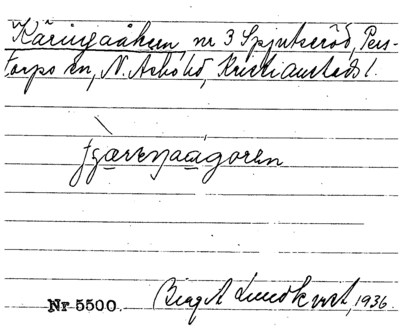 Käringaåkern, nr 3 Spjutseröd, Pers-
torps sn, N. Åsbo hd, Kristianstads l.
Nr 5500. Birgit Lundkvist, 1936.